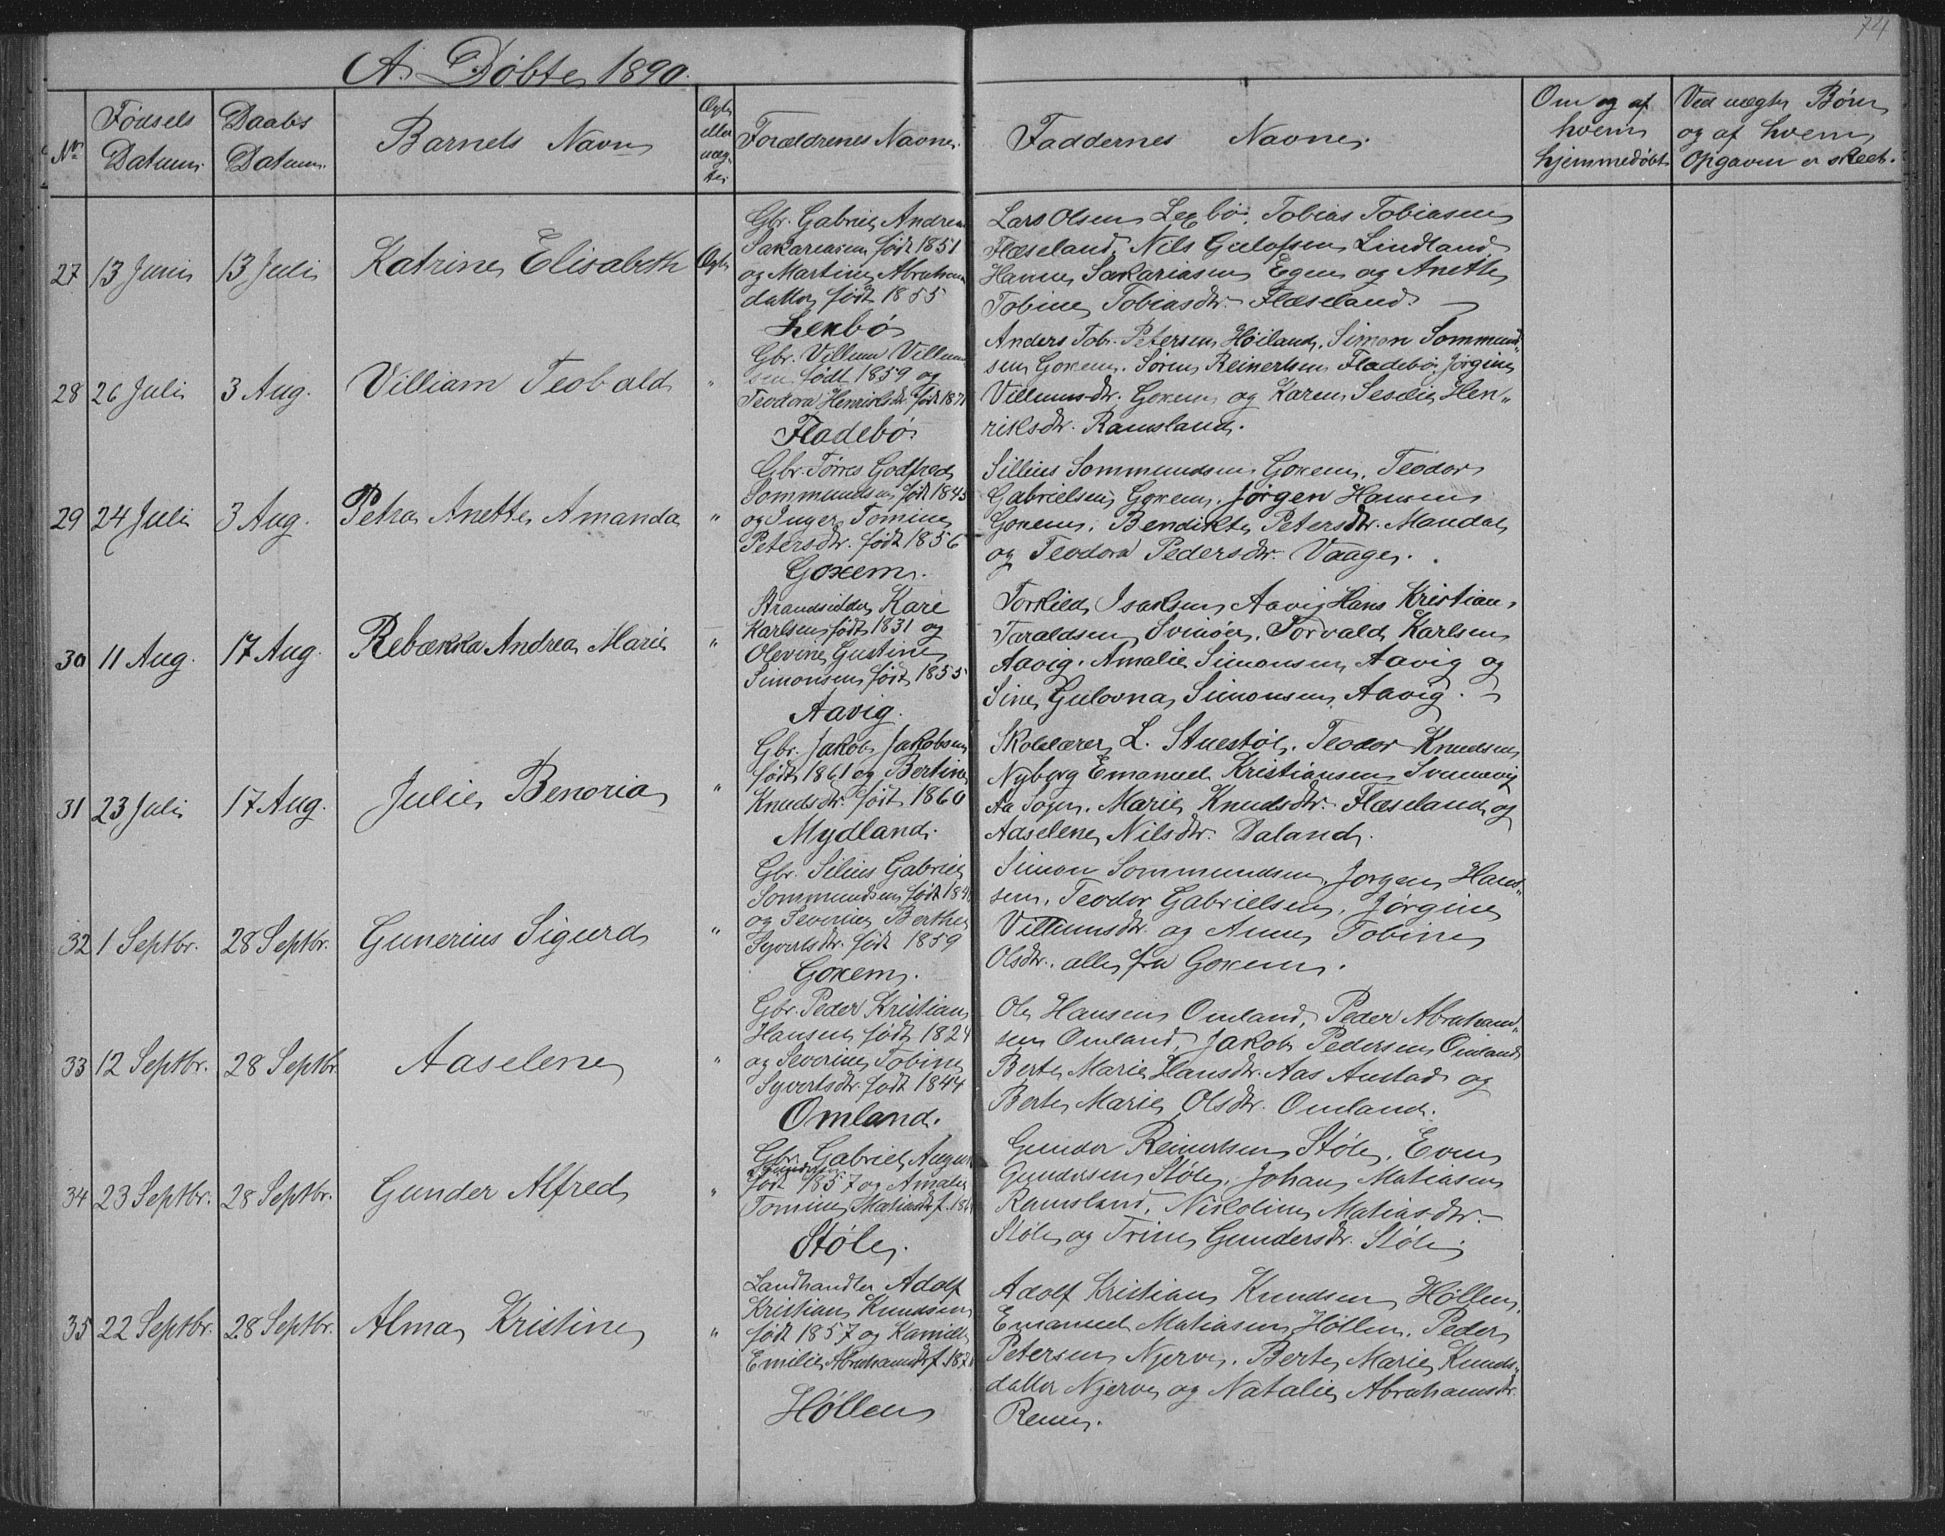 74
A. Døbte 1890.
Nr.
Fødsels Datum.
Daabs Datum.
Barnets Navn
Ægte eller uæg- te.
Forældrenes Navne.
Faddernes Navne.
Om og af hvem hjemmedøbt
Ved uægte Børn og af hvem Opgaven er skeet.
27 13 Juni 13 Juli Katrine Elisabeth Ægte
Gbr. Gabriel Andreas
Sakariasen født 1851
og Martine Abraham
datter født 1855
Lexbø
Lars Olsen Lexbø, Tobias Tobiasen
Flæseland, Nils Gulofsen Lindland
Hanne Sakariasen Egen og Anette
Tobine Tobiasdtr. Flæseland.
28 26 Juli 3 Aug. Villiam Teobald "
Gbr. Villum Villum
sen født 1859 og
Teodora Henriksdtr. født 1871
Fladebø
Anders Tob. Petersen Høiland, Simon Sommund„
sen Goxem. Søren Reinertsen Fladebø, Jørgine
Villumsdtr. Goxem og Karen Seselie Hen„
riksdtr. Ramsland.
29 24 Juli 3 Aug. Petra Anette Amanda "
Gbr. Tørres Godfred
Sommundsen født 1845
og Inger Tomine
Petersdtr. født 1856
Goxem.
Sillius Sommundsen Goxem, Teodor
Gabrielsen Goxem, Jørgen Hansen
Goxem, Bendikte Petersdtr. Mandal
og Teodora Pedersdtr. Vaage.
30 11 Aug. 17 Aug. Rebækka Andrea Marie "
Strandsidder Kare
Karlsen født 1831 og
Olevine Gustine
Simonsen født 1855
Aavig.
Torkild Isaksen Aavig, Hans Kristian
Taraldsen Svinør, Torvald Karlsen
Aavig, Amalie Simonsen Aavig og
Sine Gulovna Simonsen Aavig.
31 23 Juli 17 Aug. Julie Benoria "
Gbr. Jakob Jakobsen
født 1861 og Bertine
Knudsdtr. født 1860
Mydland.
Skolelærer L. Stuestøl, Teodor Knudsen
Nyborg Emanuel Kristiansen Svennevig
Aa Sogn, Marie Knudsdtr. Flæseland og
Aaselene Nilsdtr. Daland.
32 1 Septbr. 28 Septbr. Gunerius Sigurd "
Gbr. Silius Gabriel
Sommundsen født 184
og Severine Berthe
Syvertsdtr. født 1859
Goxem.
Simon Sommundsen, Jørgen Han„
sen, Teodor Gabrielsen, Jørgine
Villumsdtr. og Anne Tobine
Olsdtr. alle fra Goxem.
33 12 Septbr. 28 Septbr Aaselene "
Gbr. Peder Kristian
Hansen født 1824
og Severine Tobine
Syvertsdtr. født 1844
Omland.
Ole Hansen Omland, Peder Abraham„
sen Omland, Jakob Pedersen Omland
Berte Marie Hansdtr. Aas Austad og
Berte Marie Olsdtr. Omland.
34 23 Septbr. 28 Septbr. Gunder Alfred "
Gbr. Gabriel August
Gundersen
født 1857 og Amalie
Tomine Matiasdtr f. 186
Støle.
Gunder Reinertsen Støle, Even
Gundersen Støle, Johan Matiasen
Ramsland, Nikoline Matiasdtr.
Støle og Trine Gundersdtr. Støle
35 22 Septbr. 28 Septbr. Alma Kristine "
Landhandler Adolf
Kristian Knudsen
født 1857 og Kamille
Emilie Abrahamsdtr f. 187
Høllen
Adolf Kristian Knudsen Høllen,
Emanuel Matiasen Høllen, Peder
Petersen Njerve, Berte Marie Knuds„
datter Njerve og Natalie Abrahamsdtr.
Renne.